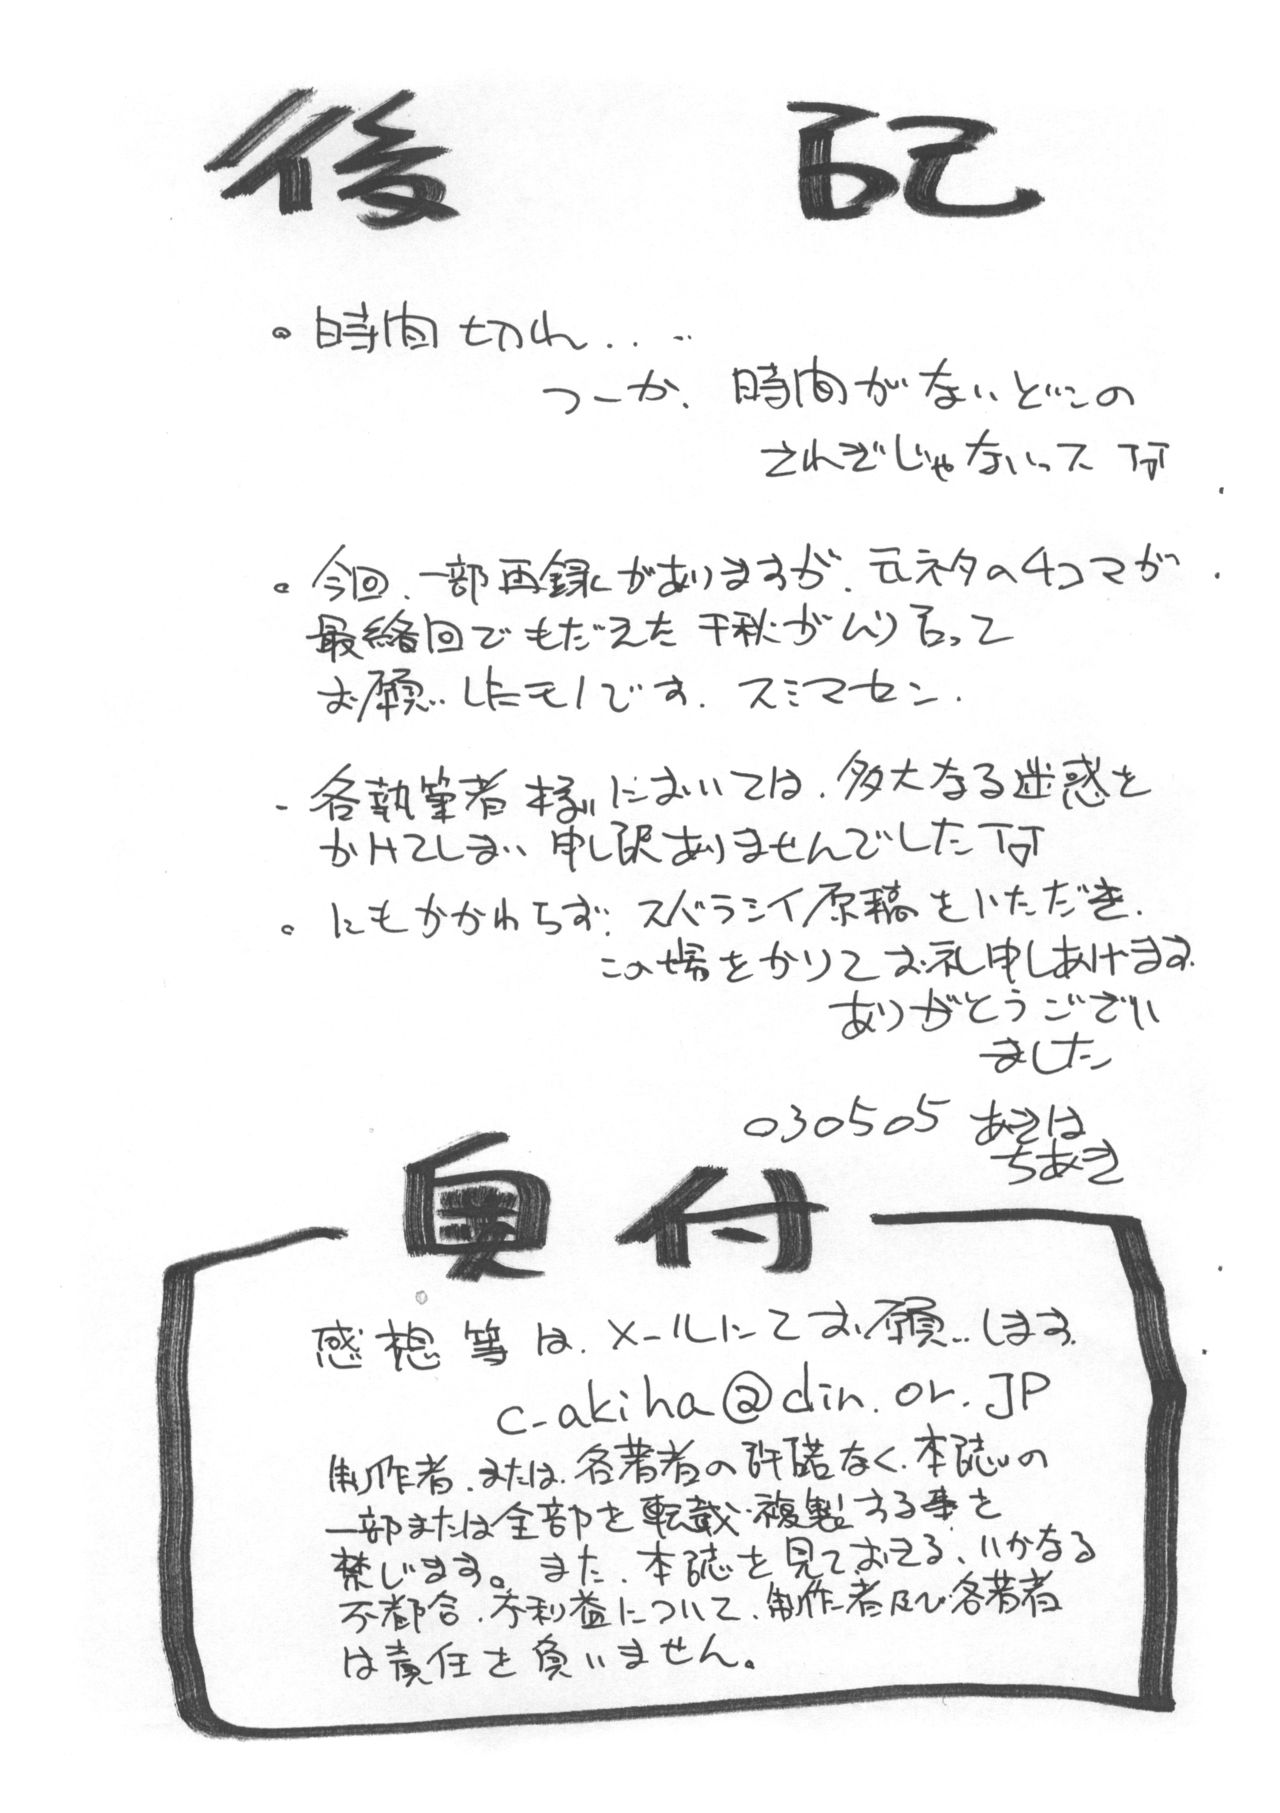 後記
。時間切れ. . ..
つーか、時間がないどこの
さわぎじゃないってT_T
。今回、一部再録がありますが、元ネタの4コマが
最終回でもだえた千秋がムリ言って
お願いしたモノです. スミマセン.
- 各執筆者様においては、多大なる迷惑を
かけてしまい申し訳ありませんでしたT_T
。にもかかわらず、スバラシイ原稿をいただき、
この場をかりてお礼申しあげます
ありがとうござい
ました
030505 あきは
ちあき
奥付
感想等は、メールにてお願いします.
c-akiha@din.or.JP
制作者、または、各著者の許諾なく、本誌の
一部または全部を転載・複製する事を
禁じます。また、本誌を見ておきる、いかなる
不都合、不利益について、制作者及び各著者
は責任を負いません。